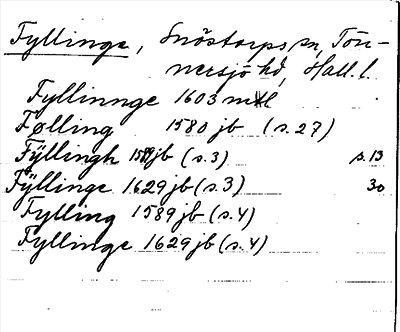 Fyllinge, Snöstorps sn, Tön-
nersjö hd, Hall. l.
Fyllinnge 1603 mtl
Følling 1580 jb (s. 27)
Fÿllingh 1589 jb (s. 3) s. 13
Fÿllinge 1629 jb (s. 3) 30
Fylling 1589 jb (s. 4)
Fyllinge 1629 jb (s. 4)